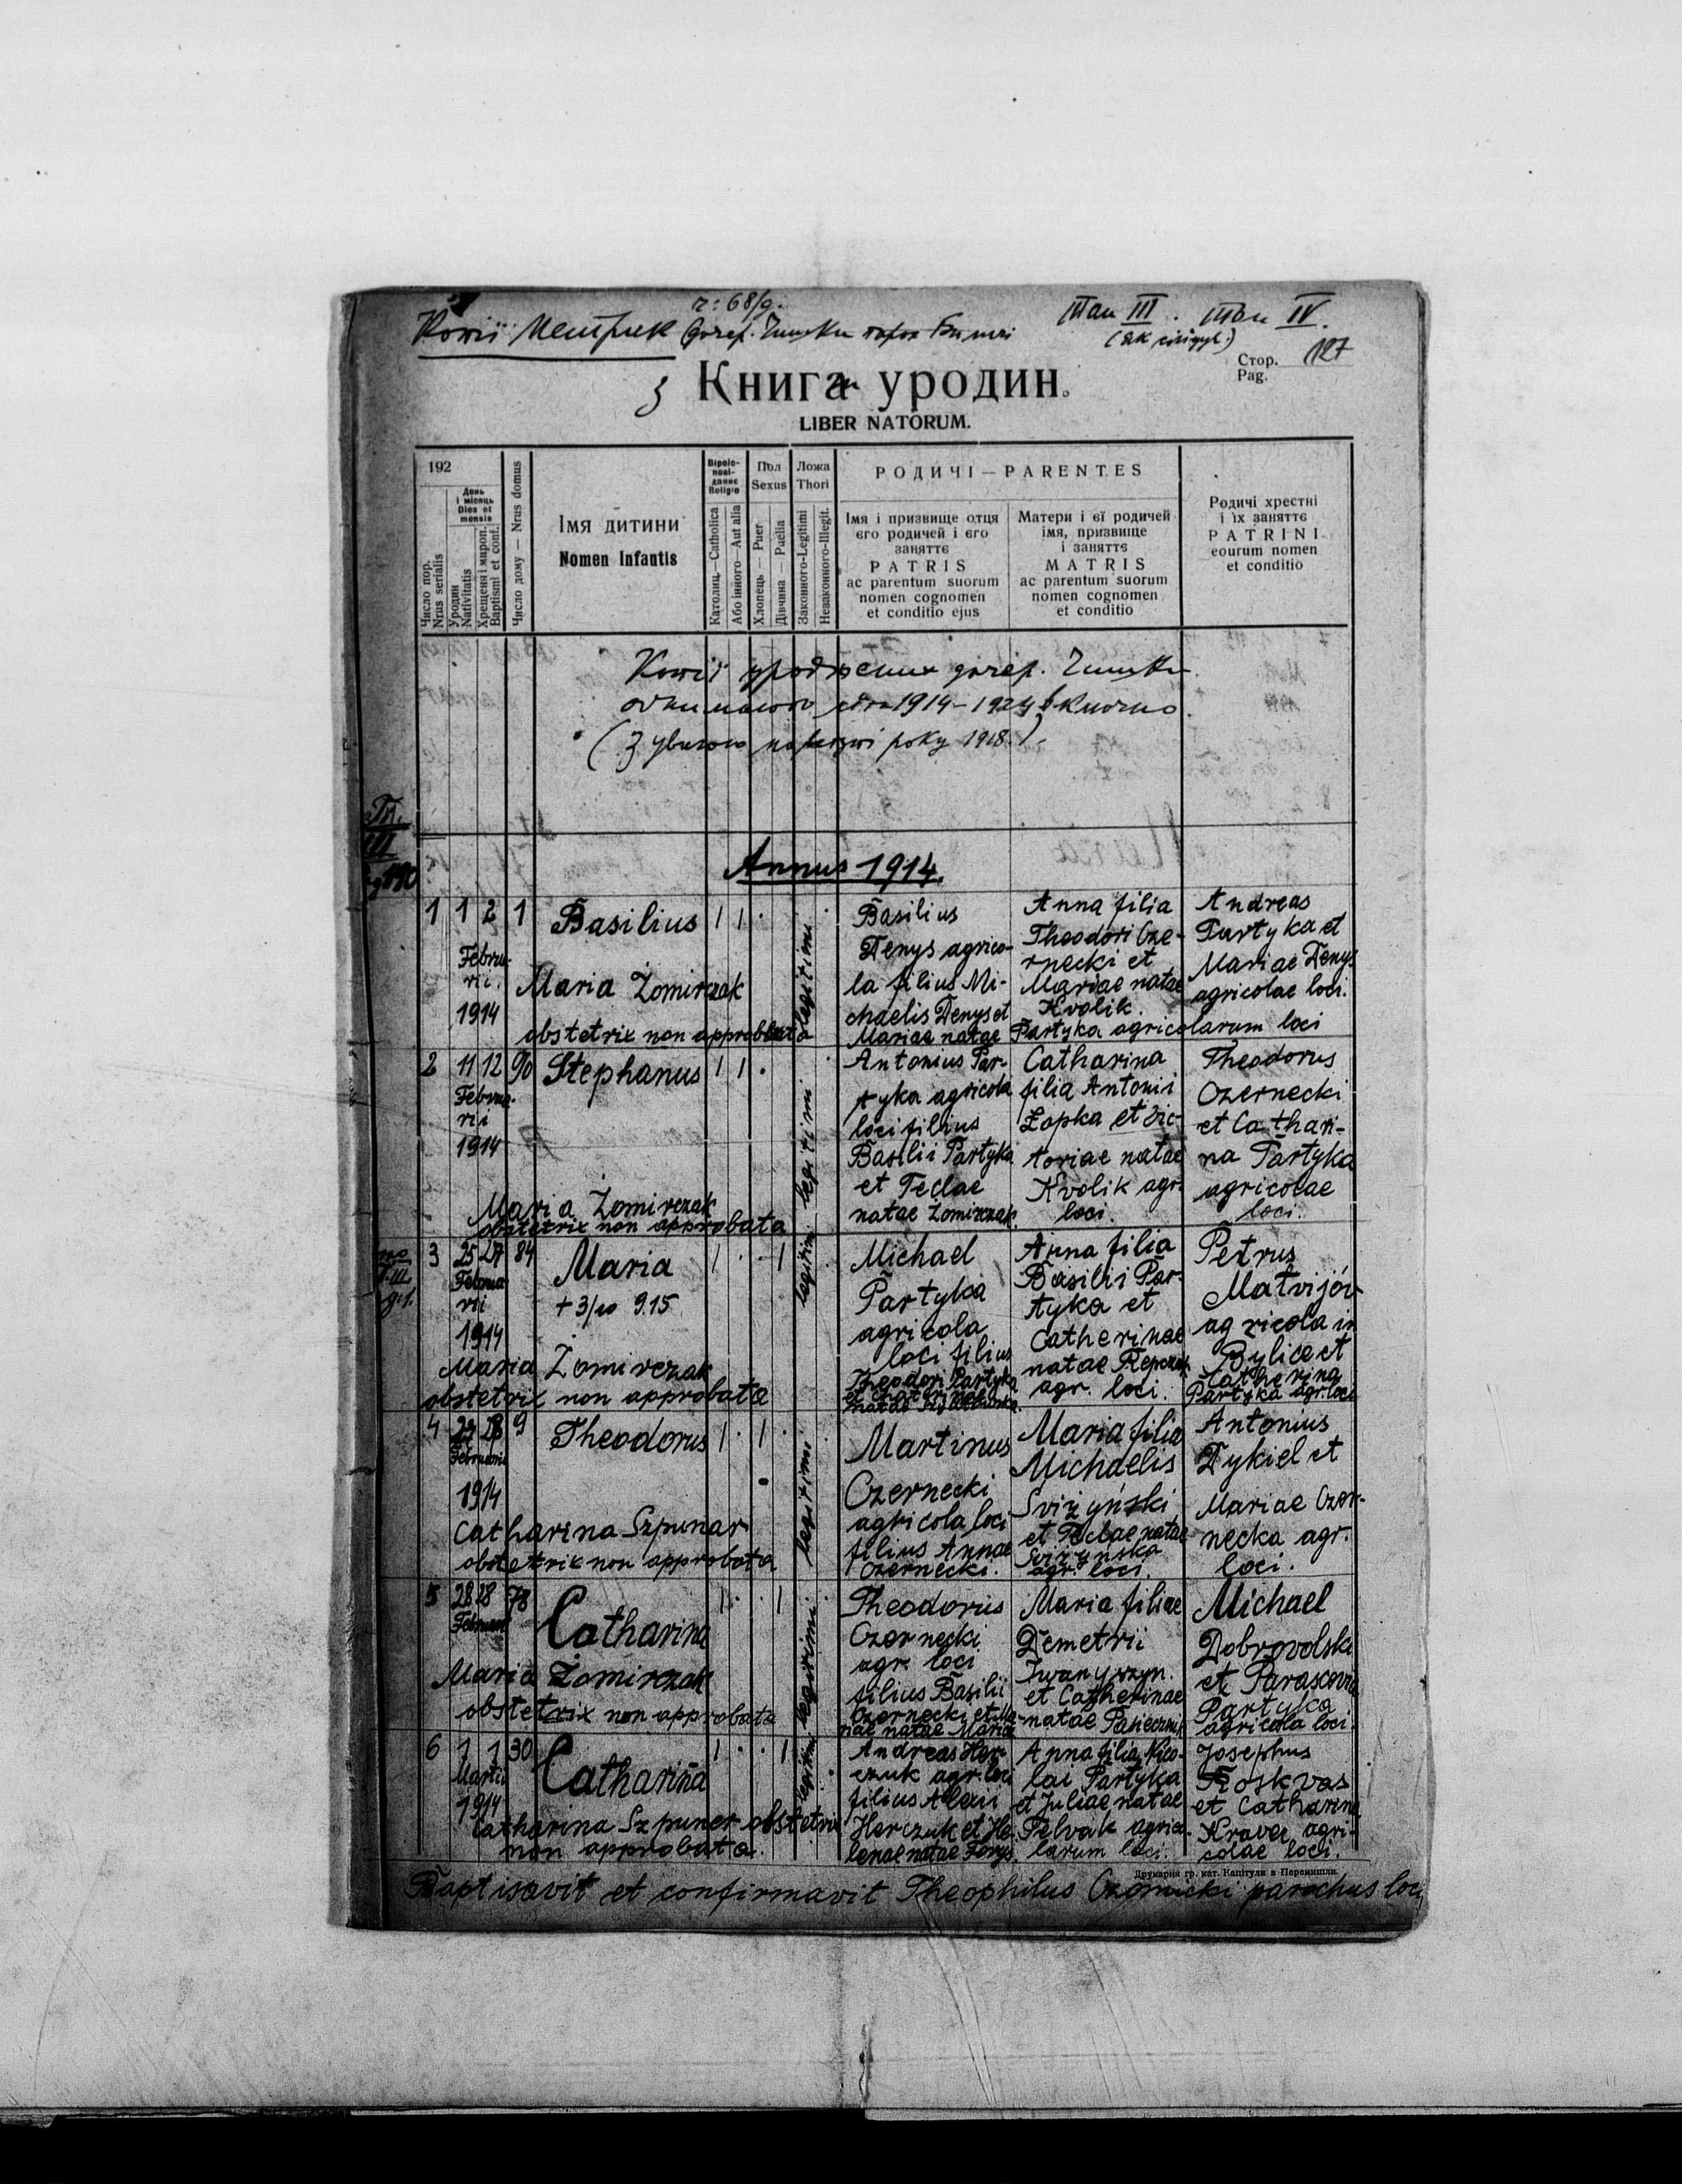 ч: 68/9.
Копії Метрик дочер. Чишки пароx Биличі
Том III. Том IV.
Стор. 127
Pag.
Книга уродин.
LIBER NATORUM.
192
Число пор. Nrus serialis
День і місяць Dies et mensis
Уродин Nativitatis
Хрещеня і миров. Baptismi et conf.
Число дому — Nrus domus
Імя дитини
Nomen infantis
Віроісповіданнє Religio
Католиц.—Catholica
Або інного—Aut alia
Пол Sexus
Хлопець — Puer
Дівчина — Puella
Ложа Thori
Законного-Legitimi
Незаконного-Illegit.
РОДИЧІ — PARENTES
Імя і призвище отця
єго родичей і єго
заняттє
PATRIS
ac parentum suorum
nomen cognomen
et conditio ejus
Матери і єї родичей
імя, призвище
і заняттє
MATRIS
ac parentum suorum
nomen cognomen
et conditio
Родичі хрестні
і їх заняттє
PATRINI
eourum nomen
et conditio
Копії уроджених дочер. Чишки
1914-1924 включно
року 1918.)
Annus 1914.
1 1 2 1 Basilius
Februarii.
1914
Maria Żomirczak
obstetrix non approbata
legitimi
Basilius
Denys agrico-
la filius Mi-
chaelis Denys et
Mariae natae Partyka agricolarum loci
Anna filia
Theodori Cze-
rnecki et
Mariae natae
Kvolik.
Andreas
Partyka et
Mariae Denys
agricolae loci.
2 11 12 90 Stephanus
Februa-
rii
1914
Maria Żomirczak
obstetrix non approbata
legitimi
Antonius Par-
tyka agricola
loci filius
Basilii Partyka
et Teclae
natae Żomirczak.
Catharina
filia Antonii
Łopka et Vic-
toriae natae
Kvolik agr.
loci.
Theodorus
Czernecki
et Cathari-
na Partyka
agricolae
loci.
3 25 27 84 Maria
Februa
rii
+ 3/10 915
1914
Maria Żomirczak
obstetrix non approbata
legitimi
Michael
Partyka
agricola
loci filius
Theodori Partyka
Anna filia
Basilii Par-
tyka et
Catherinae
natae Repczak
agr. loci.
Petrus
Matvijów
agricola in
Bylice et
Catherina
Partyka agr. loci
4 27 28 9 Theodorus
Februarii
1914
Catharina Szpunar
obstetrix non approbata
legitimi
Martinus
Czernecki
agricola loci
filius Annae
Czernecki.
Maria filia
Michaelis
Sviżyński
et Teclae natae
Sviżyńska
agr. loci.
Antonius
Dykiel et
Mariae Czer-
necka agr.
loci.
5 28 28 78 Catharina
Februarii
Maria Żomirczak
obstetrix non approbata
legitimi
Theodorus
Czernecki
agr. loci
filius Basilii
Czernecki et Ma-
riae natae Maria
Maria filiae
Demetrii
Iwanyszyn.
et Catherinae
natae Pasiecznik
Michael
Dobrovolski
et Parascevia
Partyka
agricola loci.
6 1 1 30 Catharina
Martii
1914
Catharina Szpuner obstetrix
non approbata.
legitimi
Andreas Her-
czuk agr. loci
filius Alexii
Herczuk et He-
lenae natae Forys.
Anna filia Nico-
lai Partyka
et Juliae natae
Pelvak agrico-
larum loci.
Josephus
Troskvas
et Catharina
Kravec agri-
colae loci.
Друкарня гр. кат. Капітули в Перемишли.
Baptisavit et confirmavit Theophilus Czornicki parochus loci